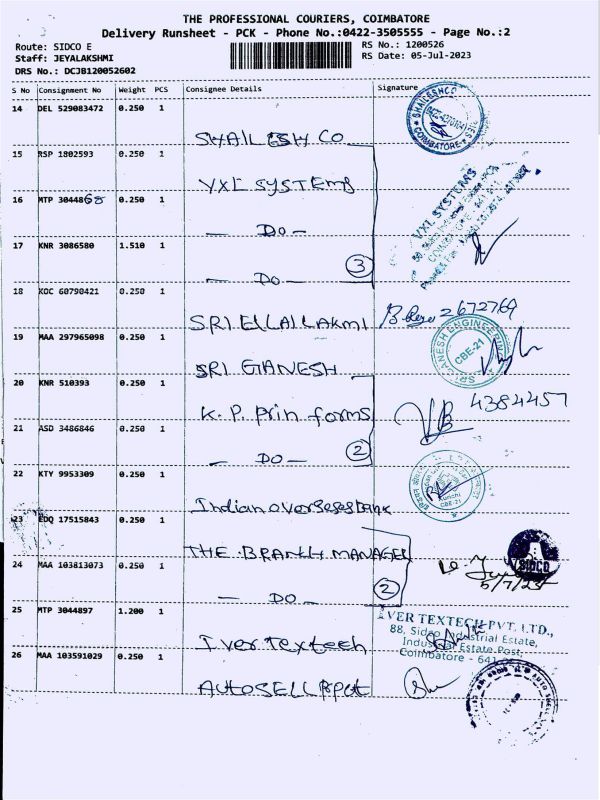 THE PROFESSIONAL COURIERS, COIMBATORE
Delivery Runsheet - PCK - Phone No.:0422-3505555 - Page No.:2
Route: SIDCO E
RS No.: 1200526
Staff: JEYALAKSHMI
RS Date: 05-Jul-2023
DRS No.: DCJB120052602
S No Consignment No Weight PCS Consignee Details Signature
14 DEL 529083472 0.250 1
SHAILESH CO
COIMBATORE
15 RSP 1802593 0.250 1
VXL SYSTEMS
VXL SYSTEMS
16 MTP 304486S 0.250 1
— DO —
17 KNR 3086580 1.510 1
— DO — 3
18 KOC 60790421 0.250 1
SRI ELLAI LAKMI 2672769
19 MAA 297965098 0.250 1
SRI GANESH
SRI GANESH ENGINEERING CBE-21
20 KNR 510393 0.250 1
K. P. Prin forms 4384457
21 ASD 3486846 0.250 1
— DO — 2
22 KTY 9953309 0.250 1
Indian overseses bank
CBE-21
23 EDQ 17515843 0.250 1
THE BRANH MANAGER
SIDCO
24 MAA 103813073 0.250 1
— DO — 2
25 MTP 3044897 1.200 1
I ver Textech
I VER TEXTECH PVT. LTD.,
88, Sidco Industrial Estate,
Industrial Estate Post,
Coimbatore - 641
26 MAA 103591029 0.250 1
AUTOSELL